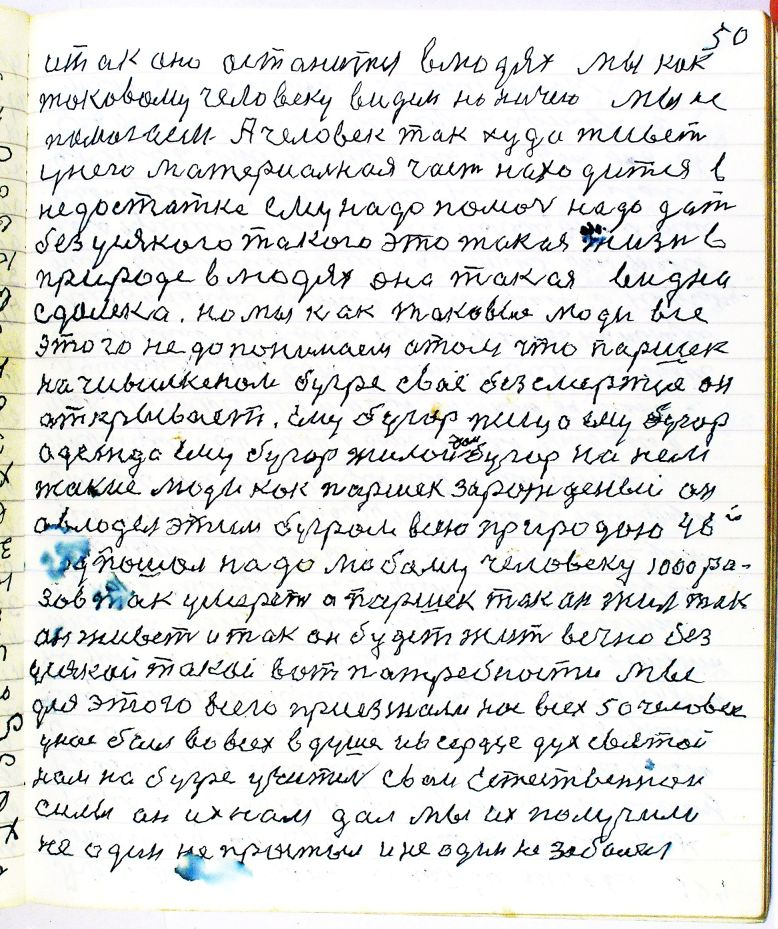 50
итак оно останится влюдях мы как
таковому человеку видим но ничем мы не
помогаем А человек так худо живет
унего материалная част находится в
недостатке ему надо помоч надо дат
без усякого такого это такая жизнь в
природе влюдях она такая видна
сдалека. но мы как таковые люди все
этого не допонимаем атом что паршек
на чивилкеном бугре своё безсмертие он
аткрывает. ему бугор пища ему бугор
адежда ему бугор жилой дом бугор на нем
такие люди как паршек зарожденыи он
авлодел этим бугром всею природаю 48й
год пошол надо любаму человеку 1000 ра-
зов так умерет а паршек так он жил так
он живет и так он будет жит вечно без
усякой такой вот патребности мы
для этого всего приезжали нас всех 50 человек
унас был во всех в душе и в сердце дух святой
нам на бугре учител свои естественнаи
силы он их нам дал мы их получили
не один не простыл и не один не заболел